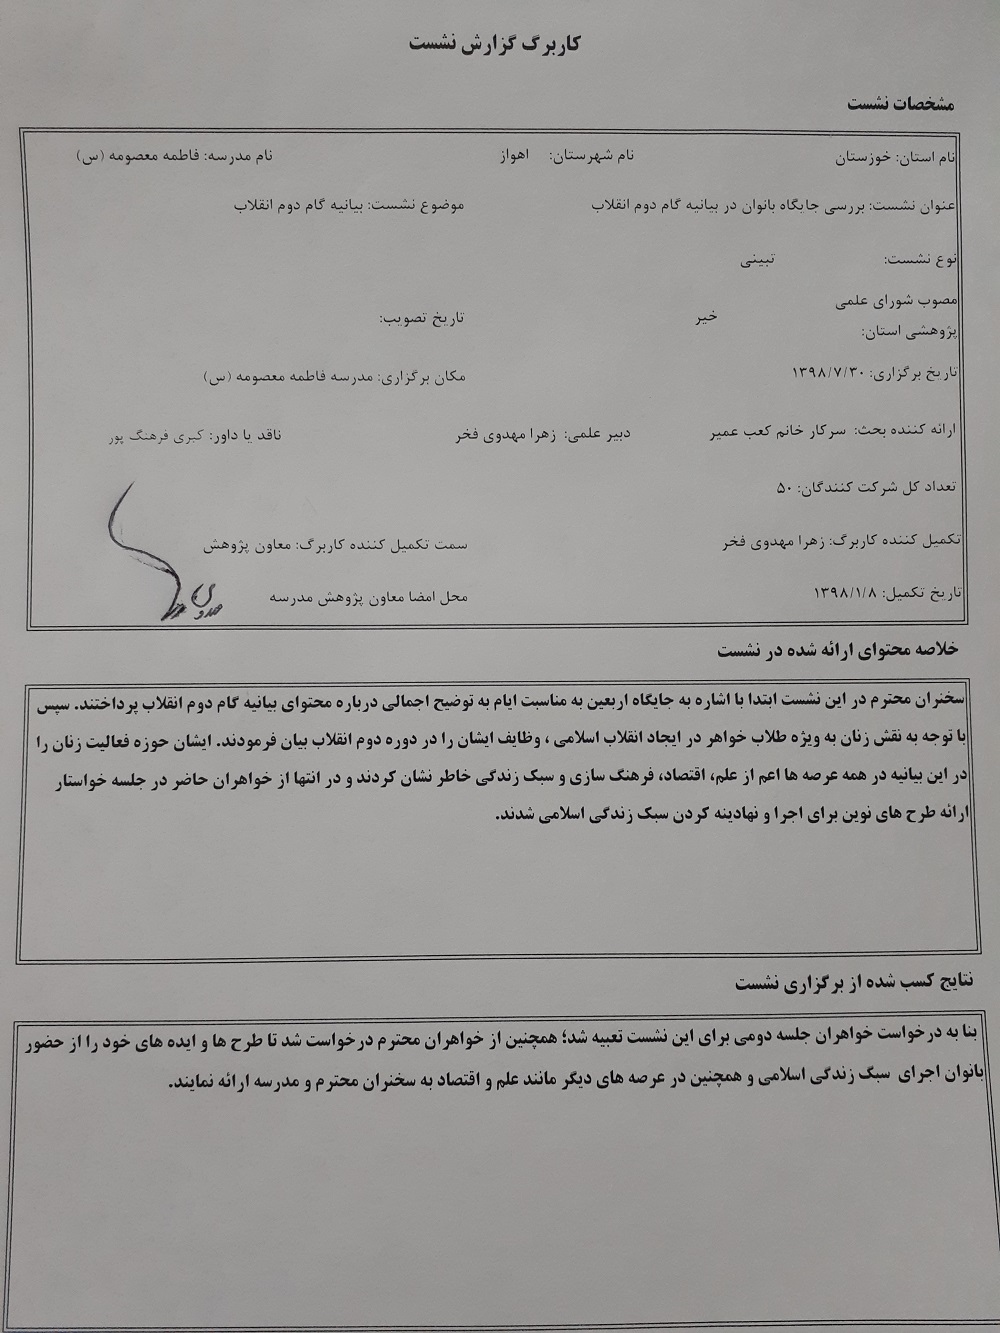 کاربرگ گزارش نشست
مشخصات نشست
نام استان: خوزستان نام شهرستان: اهواز نام مدرسه: فاطمه معصومه (س)
عنوان نشست: بررسی جایگاه بانوان در بیانیه گام دوم انقلاب موضوع نشست: بیانیه گام دوم انقلاب
نوع نشست: تبینی
مصوب شورای علمی
پژوهشی استان: خیر تاریخ تصویب:
تاریخ برگزاری: ۱۳۹۸/۷/۳۰ مکان برگزاری: مدرسه فاطمه معصومه (س)
ارائه کننده بحث: سرکار خانم کعب عمیر دبیر علمی: زهرا مهدوی فخر ناقد یا داور: کبری فرهنگ پور
تعداد کل شرکت کنندگان: ۵۰
تکمیل کننده کاربرگ: زهرا مهدوی فخر سمت تکمیل کننده کاربرگ: معاون پژوهش
تاریخ تکمیل: ۱۳۹۸/۱/۸ محل امضا معاون پژوهش مدرسه
خلاصه محتوای ارائه شده در نشست
سخنران محترم در این نشست ابتدا با اشاره به جایگاه اربعین به مناسبت ایام به توضیح اجمالی درباره محتوای بیانیه گام دوم انقلاب پرداختند. سپس
با توجه به نقش زنان به ویژه طلاب خواهر در ایجاد انقلاب اسلامی ، وظایف ایشان را در دوره دوم انقلاب بیان فرمودند. ایشان حوزه فعالیت زنان را
در این بیانیه در همه عرصه ها اعم از علم، اقتصاد، فرهنگ سازی و سبک زندگی خاطر نشان کردند و در انتها از خواهران حاضر در جلسه خواستار
ارائه طرح های نوین برای اجرا و نهادینه کردن سبک زندگی اسلامی شدند.
نتایج کسب شده از برگزاری نشست
بنا به درخواست خواهران جلسه دومی برای این نشست تعبیه شد؛ همچنین از خواهران محترم درخواست شد تا طرح ها و ایده های خود را از حضور
بانوان اجرای سبگ زندگی اسلامی و همچنین در عرصه های دیگر مانند علم و اقتصاد به سخنران محترم و مدرسه ارائه نمایند.